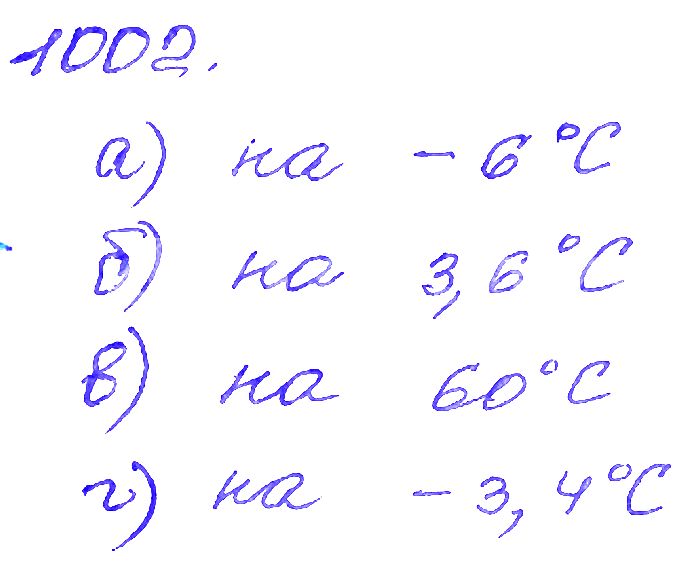 1002.
а) на - 6 °С
б) на 3,6 °С
в) на 60 °С
г) на - 3,4 °С